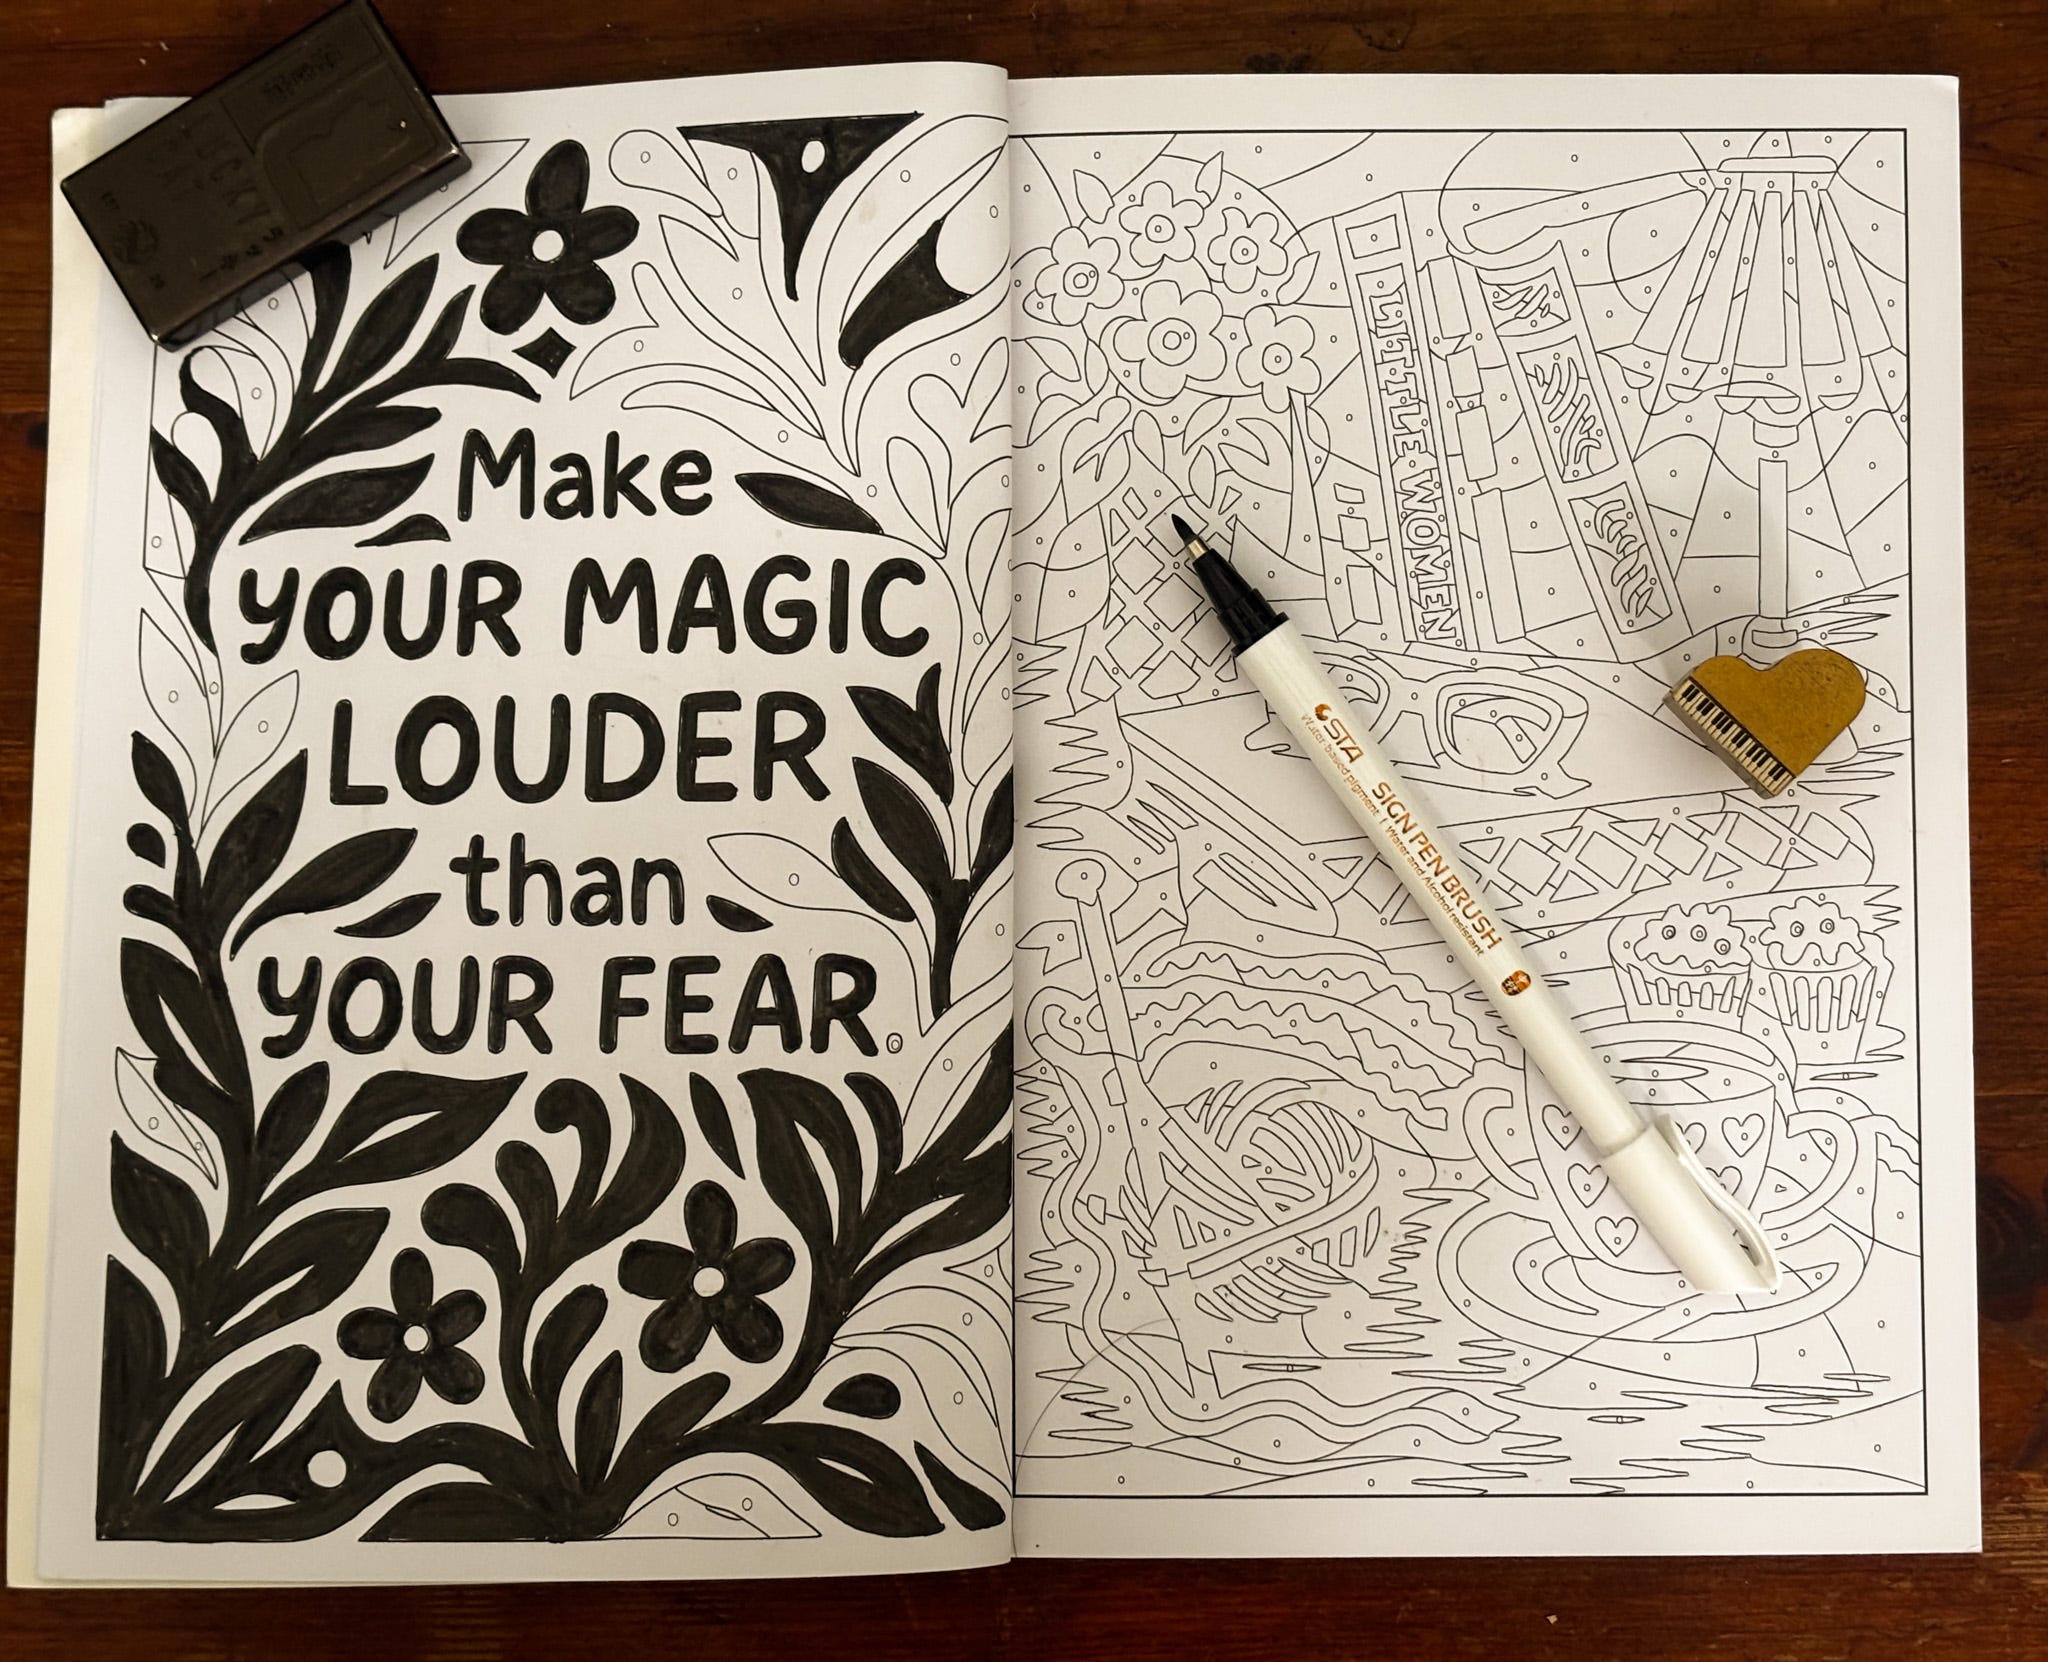 Make
YOUR MAGIC
LOUDER
than
YOUR FEAR.
LITTLE WOMEN
STA SIGN PEN BRUSH
Water-based pigment | Water and Alcohol resistant